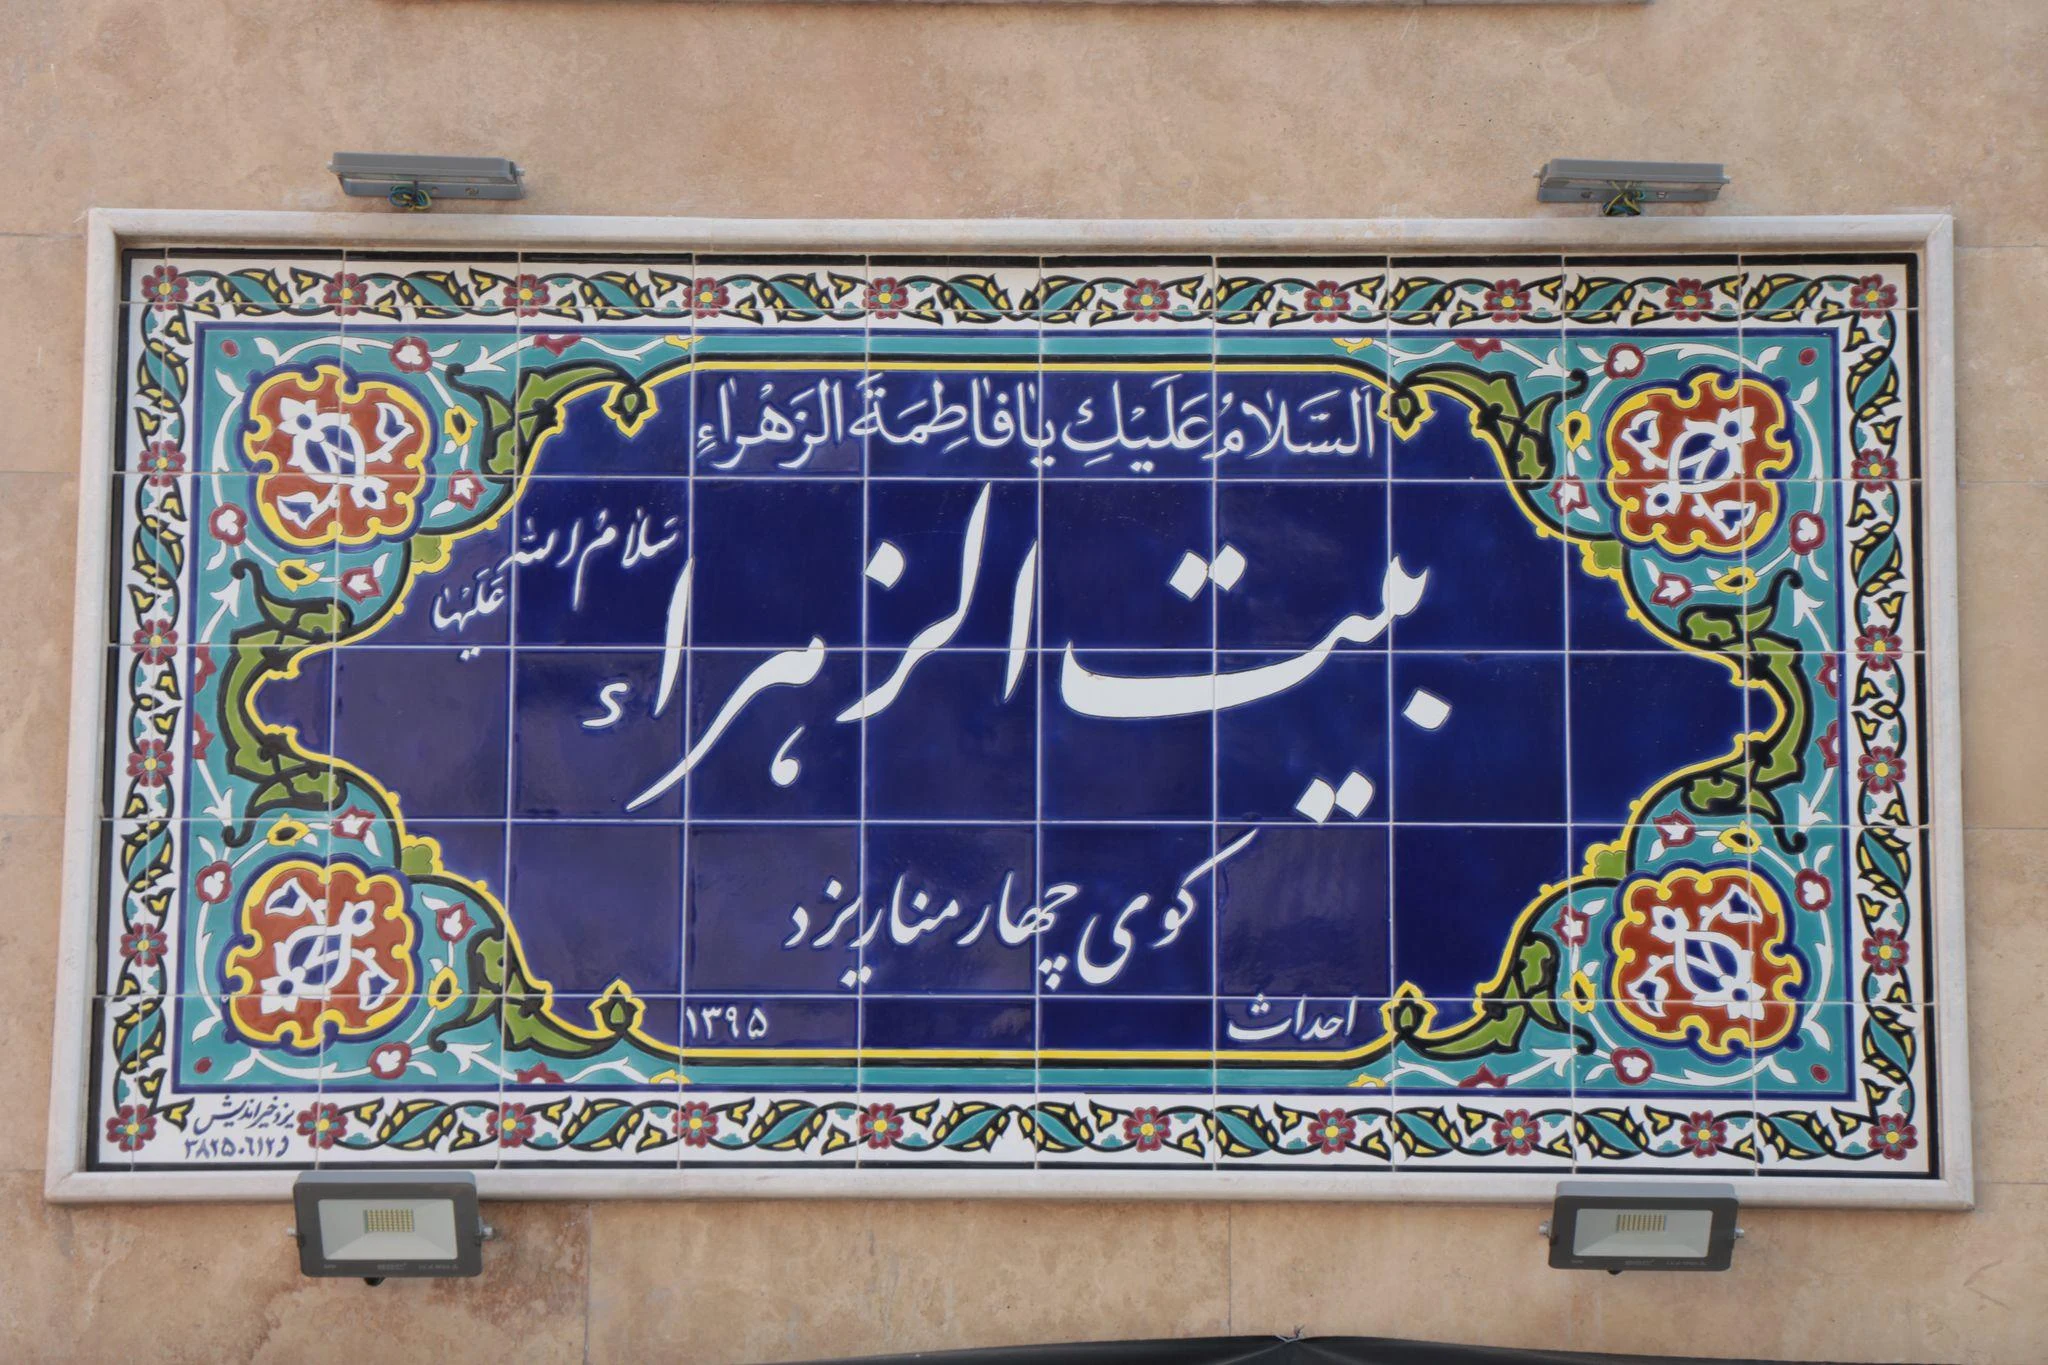 اَلسَّلامُ عَلَيْكِ يا فاطِمَةَ الزَهْراءِ
بیت الزهراء
سَلامُ الله
عَلَیها
کوی چهار منار یزد
احداث ۱۳۹۵
یزد خیراندیش